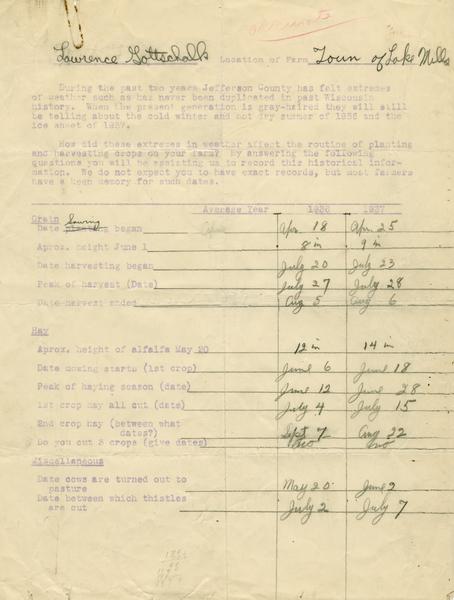 Lawrence Gottschalk Location of Farm Town of Lake Mills
During the past two years Jefferson County has felt extremes
of weather such as has never been duplicated in past Wisconsin
history. When the present generation is gray-haired they will still
be telling about the cold winter and hot dry summer of 1936 and the
ice sheet of 1937.
How did these extremes in weather affect the routine of planting
and harvesting crops on your farm? By answering the following
questions you will be assisting us to record this historical infor-
mation. We do not expect you to have exact records, but most farmers
have a keen memory for such dates.
Average Year 1936 1937
Grain
Date Sowing began Apr. 18 Apr. 25
Aprox. height June 1 8 in 9 in
Date harvesting began July 20 July 23
Peak of harvest (Date) July 27 July 28
Date harvest ended Aug 5 Aug 6
Hay
Aprox. height of alfalfa May 20 12 in 14 in
Date mowing starts (1st crop) June 6 June 18
Peak of haying season (date) June 12 June 28
1st crop hay all cut (date) July 4 July 15
2nd crop hay (between what
dates?) Sept 7 Aug 22
Do you cut 3 crops (give dates) no no
Miscellaneous
Date cows are turned out to
pasture May 20 June 2
Date between which thistles
are cut July 2 July 7